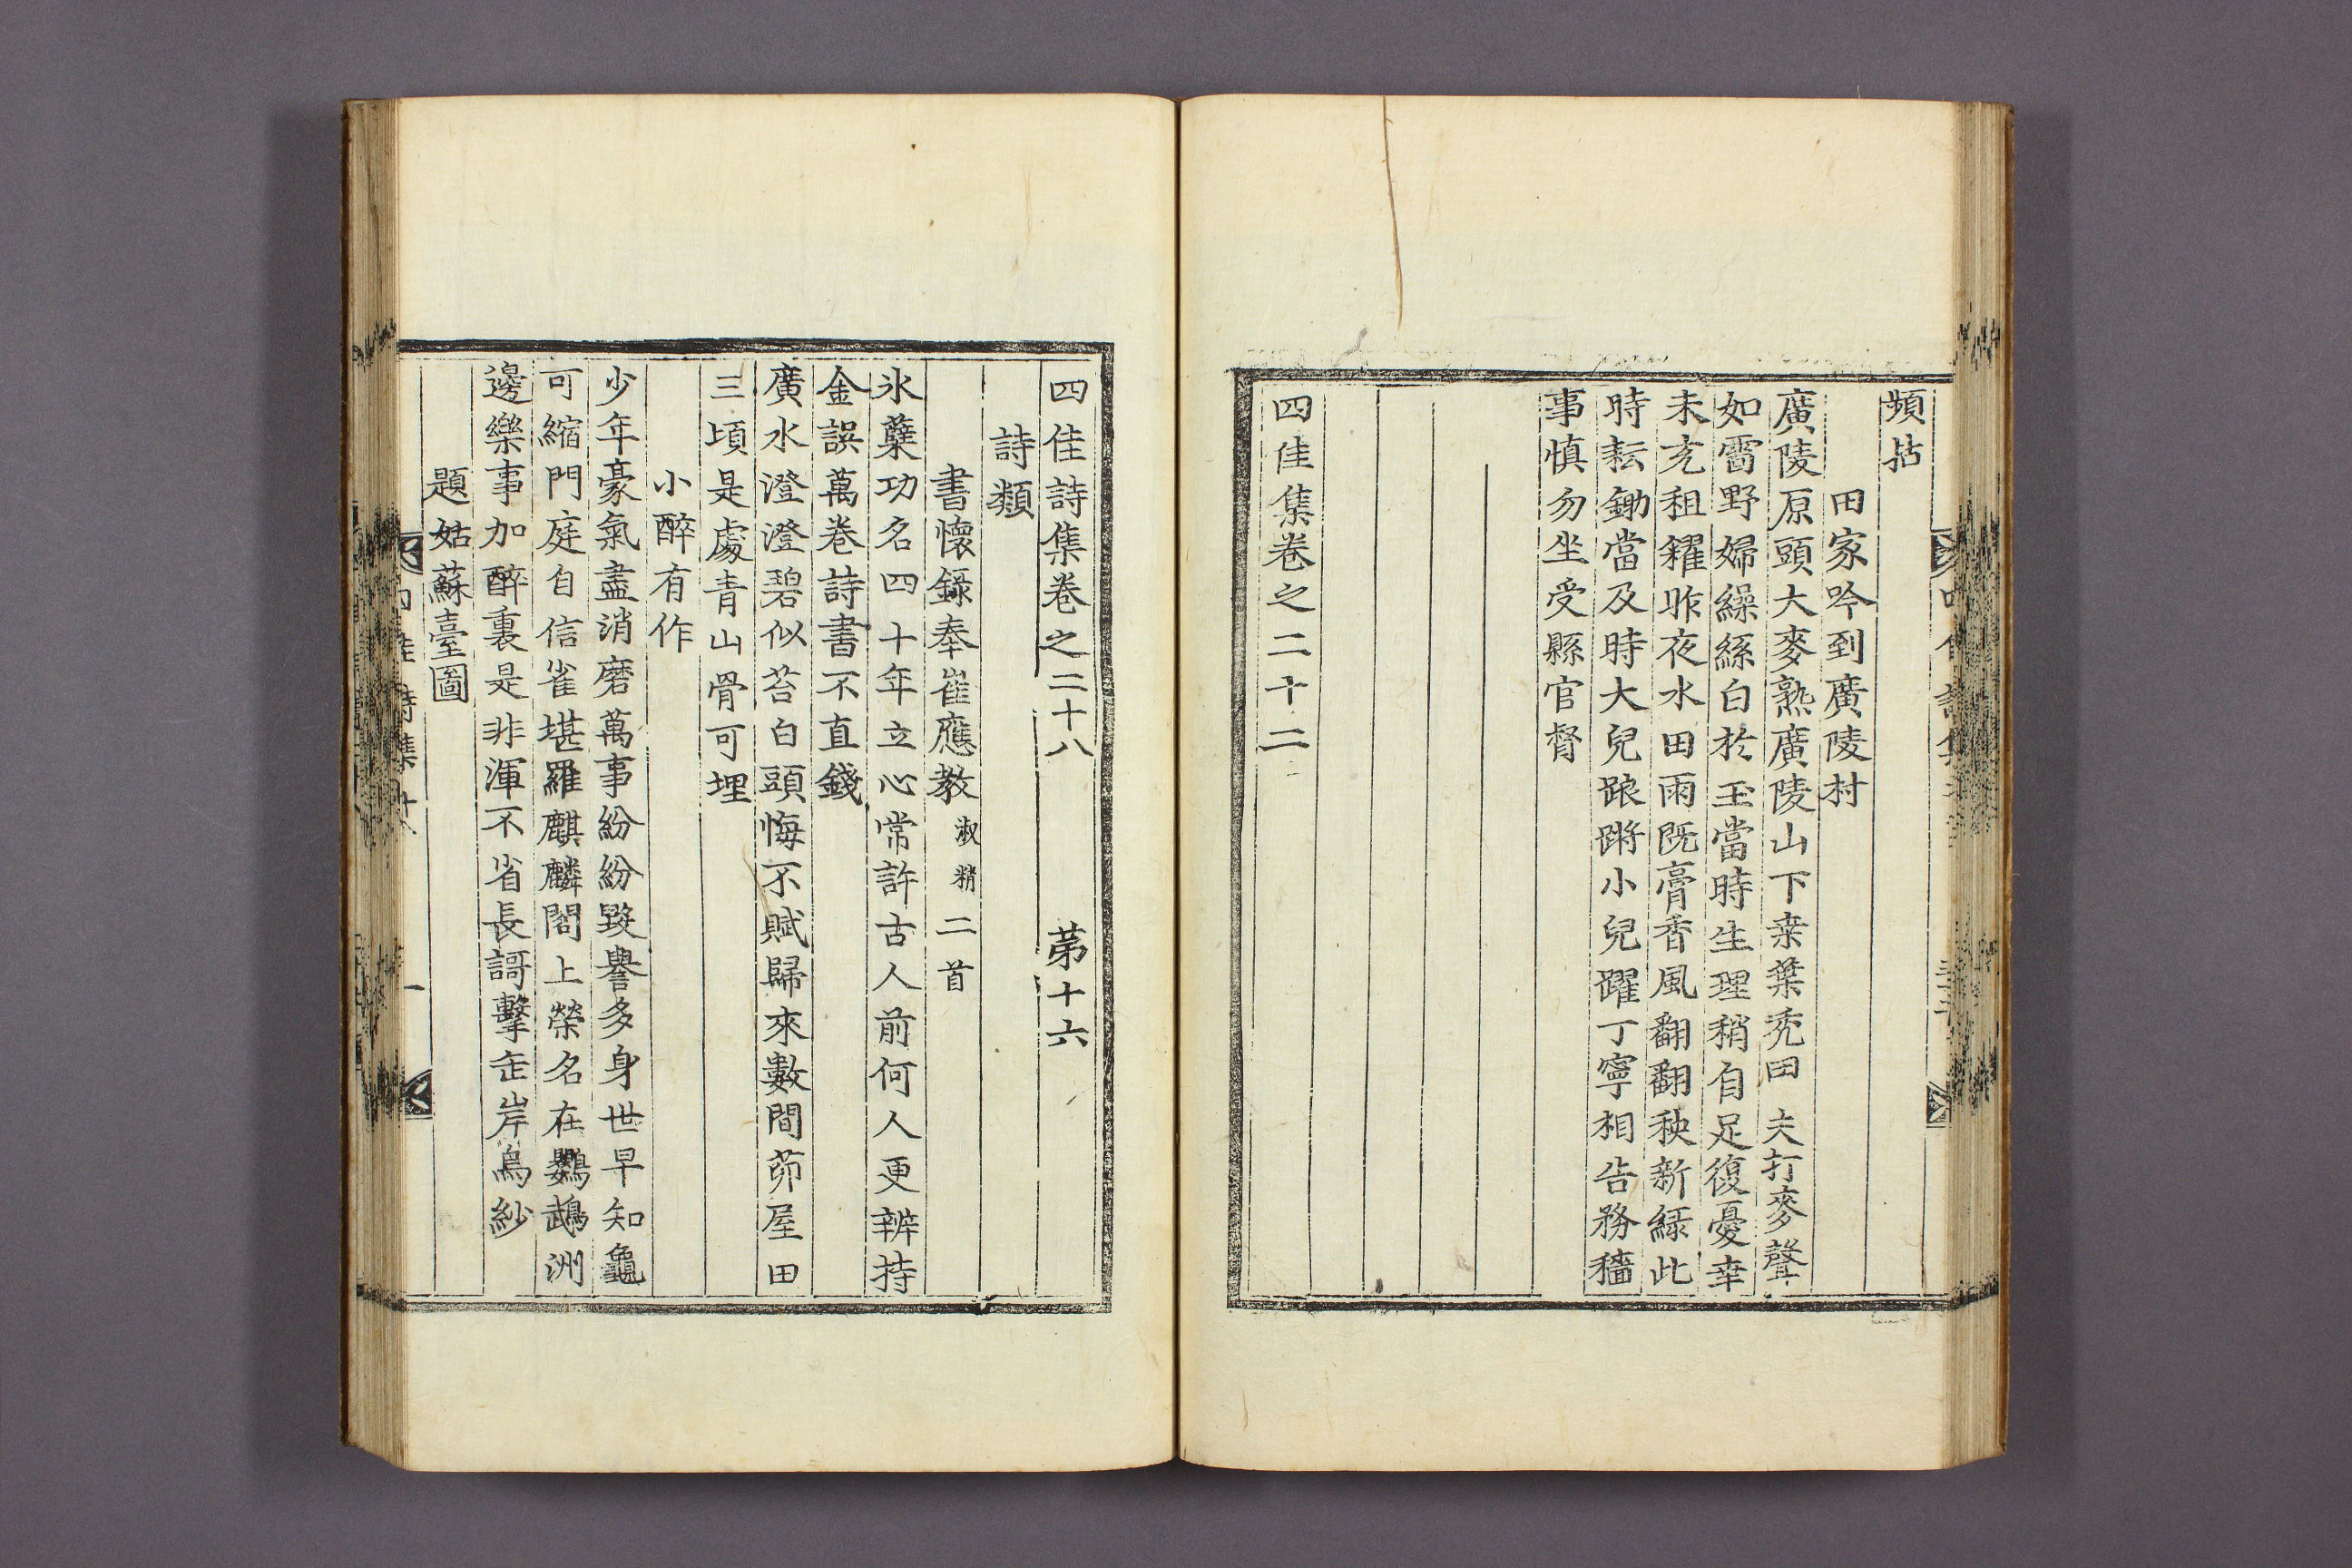 頻拈
田家吟到廣陵村
廣陵原頭大麥熟廣陵山下桒葉秃田夫打麥聲
如雷野婦繰絲白於玉當時生理稍自足復憂幸
未充租糴昨夜水田雨既膏香風翻翻秧新綠此
時耘鋤當及時大兒踉蹡小兒躍丁寧相告務穡
事慎勿坐受縣官督
四佳集卷之二十二
四佳詩集卷之二十八 苐十六
詩類
書懷錄奉崔應教淑精二首
氷蘗功名四十年立心常許古人前何人更辨持
金誤萬卷詩書不直錢
廣水澄澄碧似苔白頭悔不賦歸來數間茆屋田
三頃是處青山骨可埋
小醉有作
少年豪氣盡消磨萬事紛紛毀譽多身世早知龜
可縮門庭自信雀堪羅麒麟閣上榮名在鸚鵡洲
邊樂事加醉裏是非渾不省長謌擊缶岸烏紗
題姑蘇臺圖